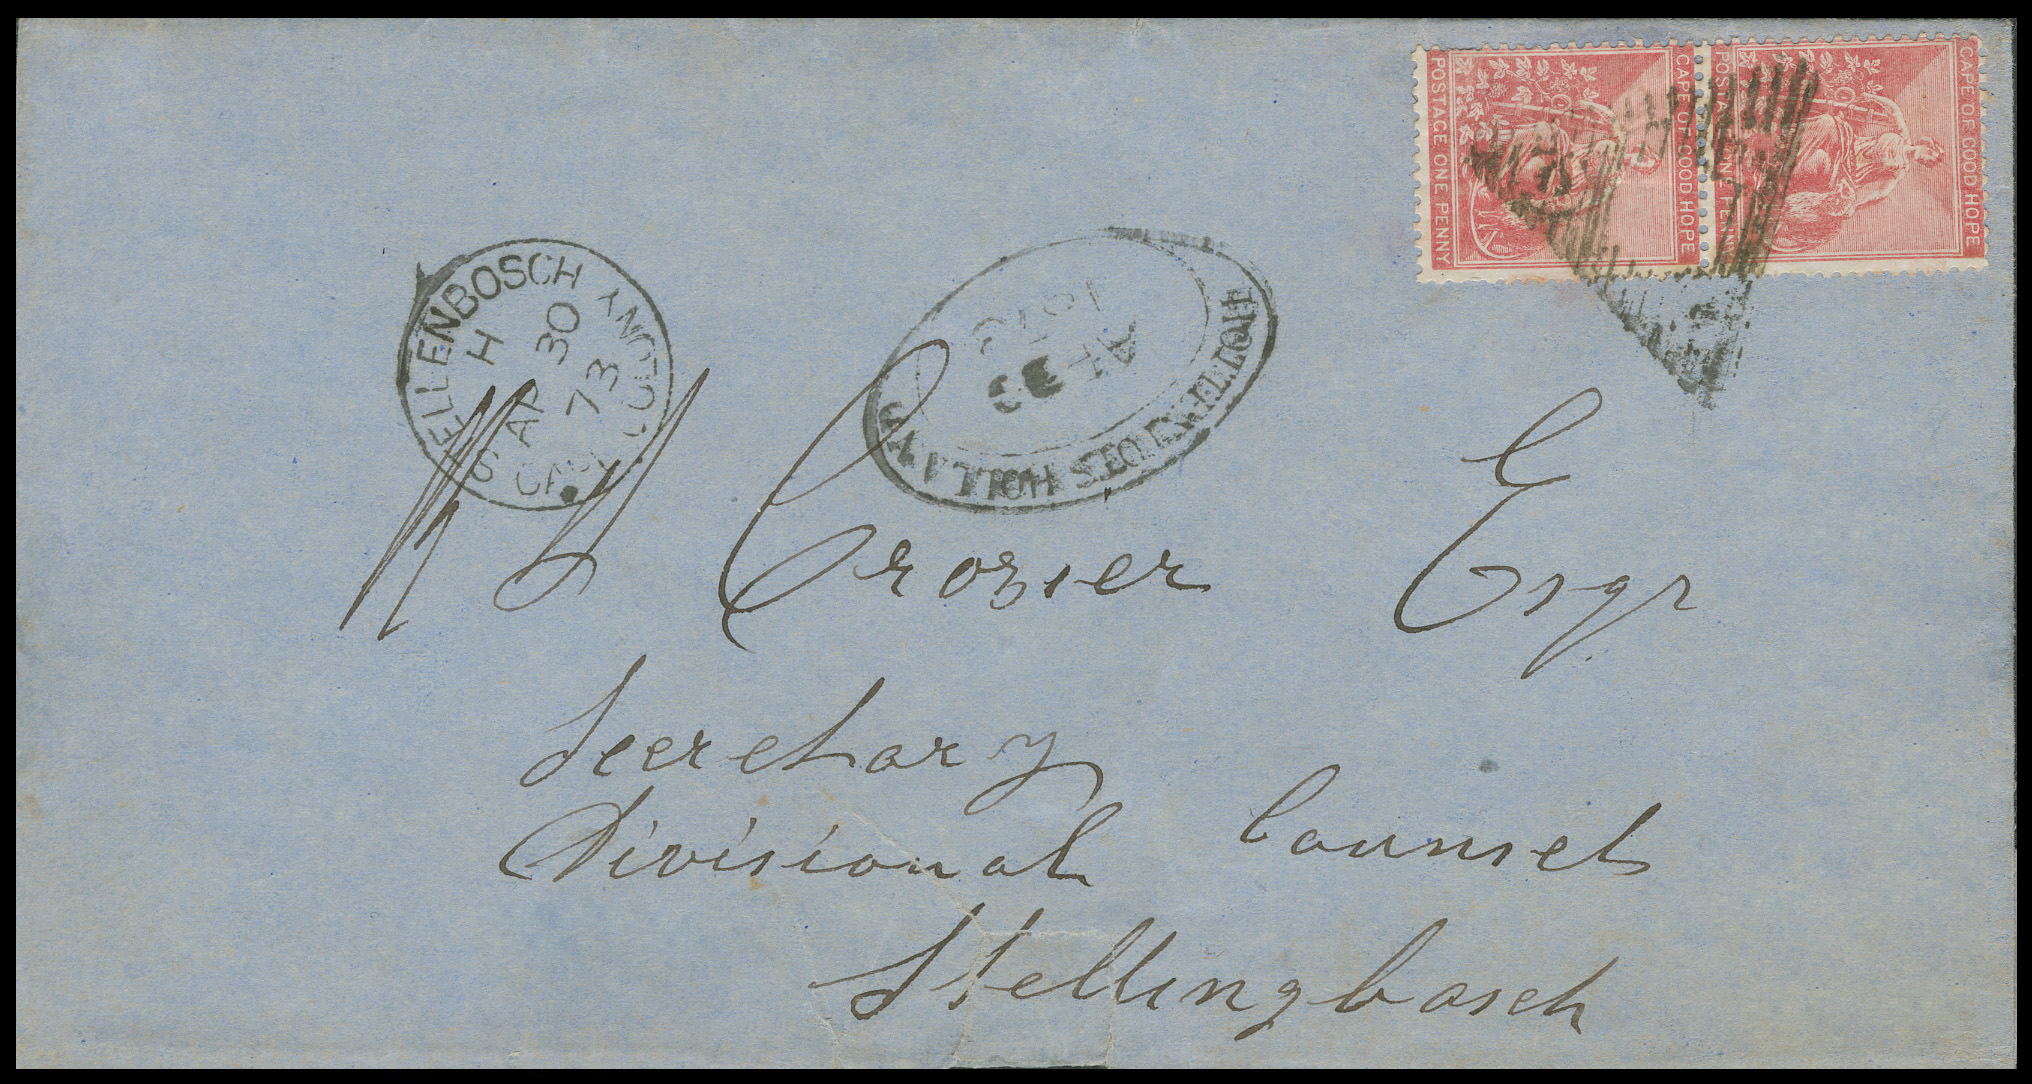 CAPE OF GOOD HOPE
POSTAGE ONE PENNY
CAPE OF GOOD HOPE
POSTAGE ONE PENNY
STELLENBOSCH
H
AP 30
73
COLONY
HOTTENTOTS HOLLAND
Crozier Esqr
Secretary
Divisional Counsel
Stellingbosch